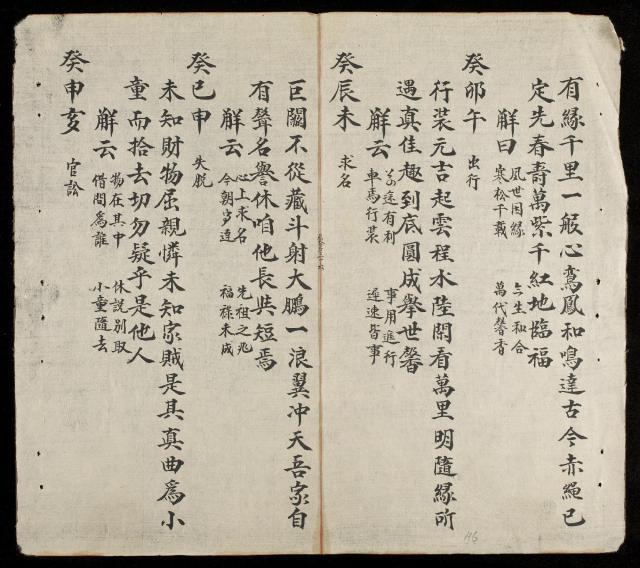 有緣千里一般心鸞鳳和鳴達古今赤繩已
定先春壽萬紫千紅地臨福
解曰
夙世因緣
寒松千載
與生和合
萬代馨香
癸卯午
出行
行装元吉起雲程水陸閑看萬里明隨緣所
遇真佳趣到底圓成舉世馨
解云
多逢有利
車馬行装
事用進行
遲速皆事
癸辰未
求名
巨闕不從藏斗射大鵬一浪翼冲天吾家自
有聲名譽休咱他長與短焉
解云
心上求名
今朝步逵
先祖之兆
福祿未成
癸巳申
失脱
未知財物屈親憐未知家賊是其真曲為小
童而拾去切勿疑乎是他人
解云
物在其中
借問為誰
休説别取
小童隨去
癸申亥
官訟